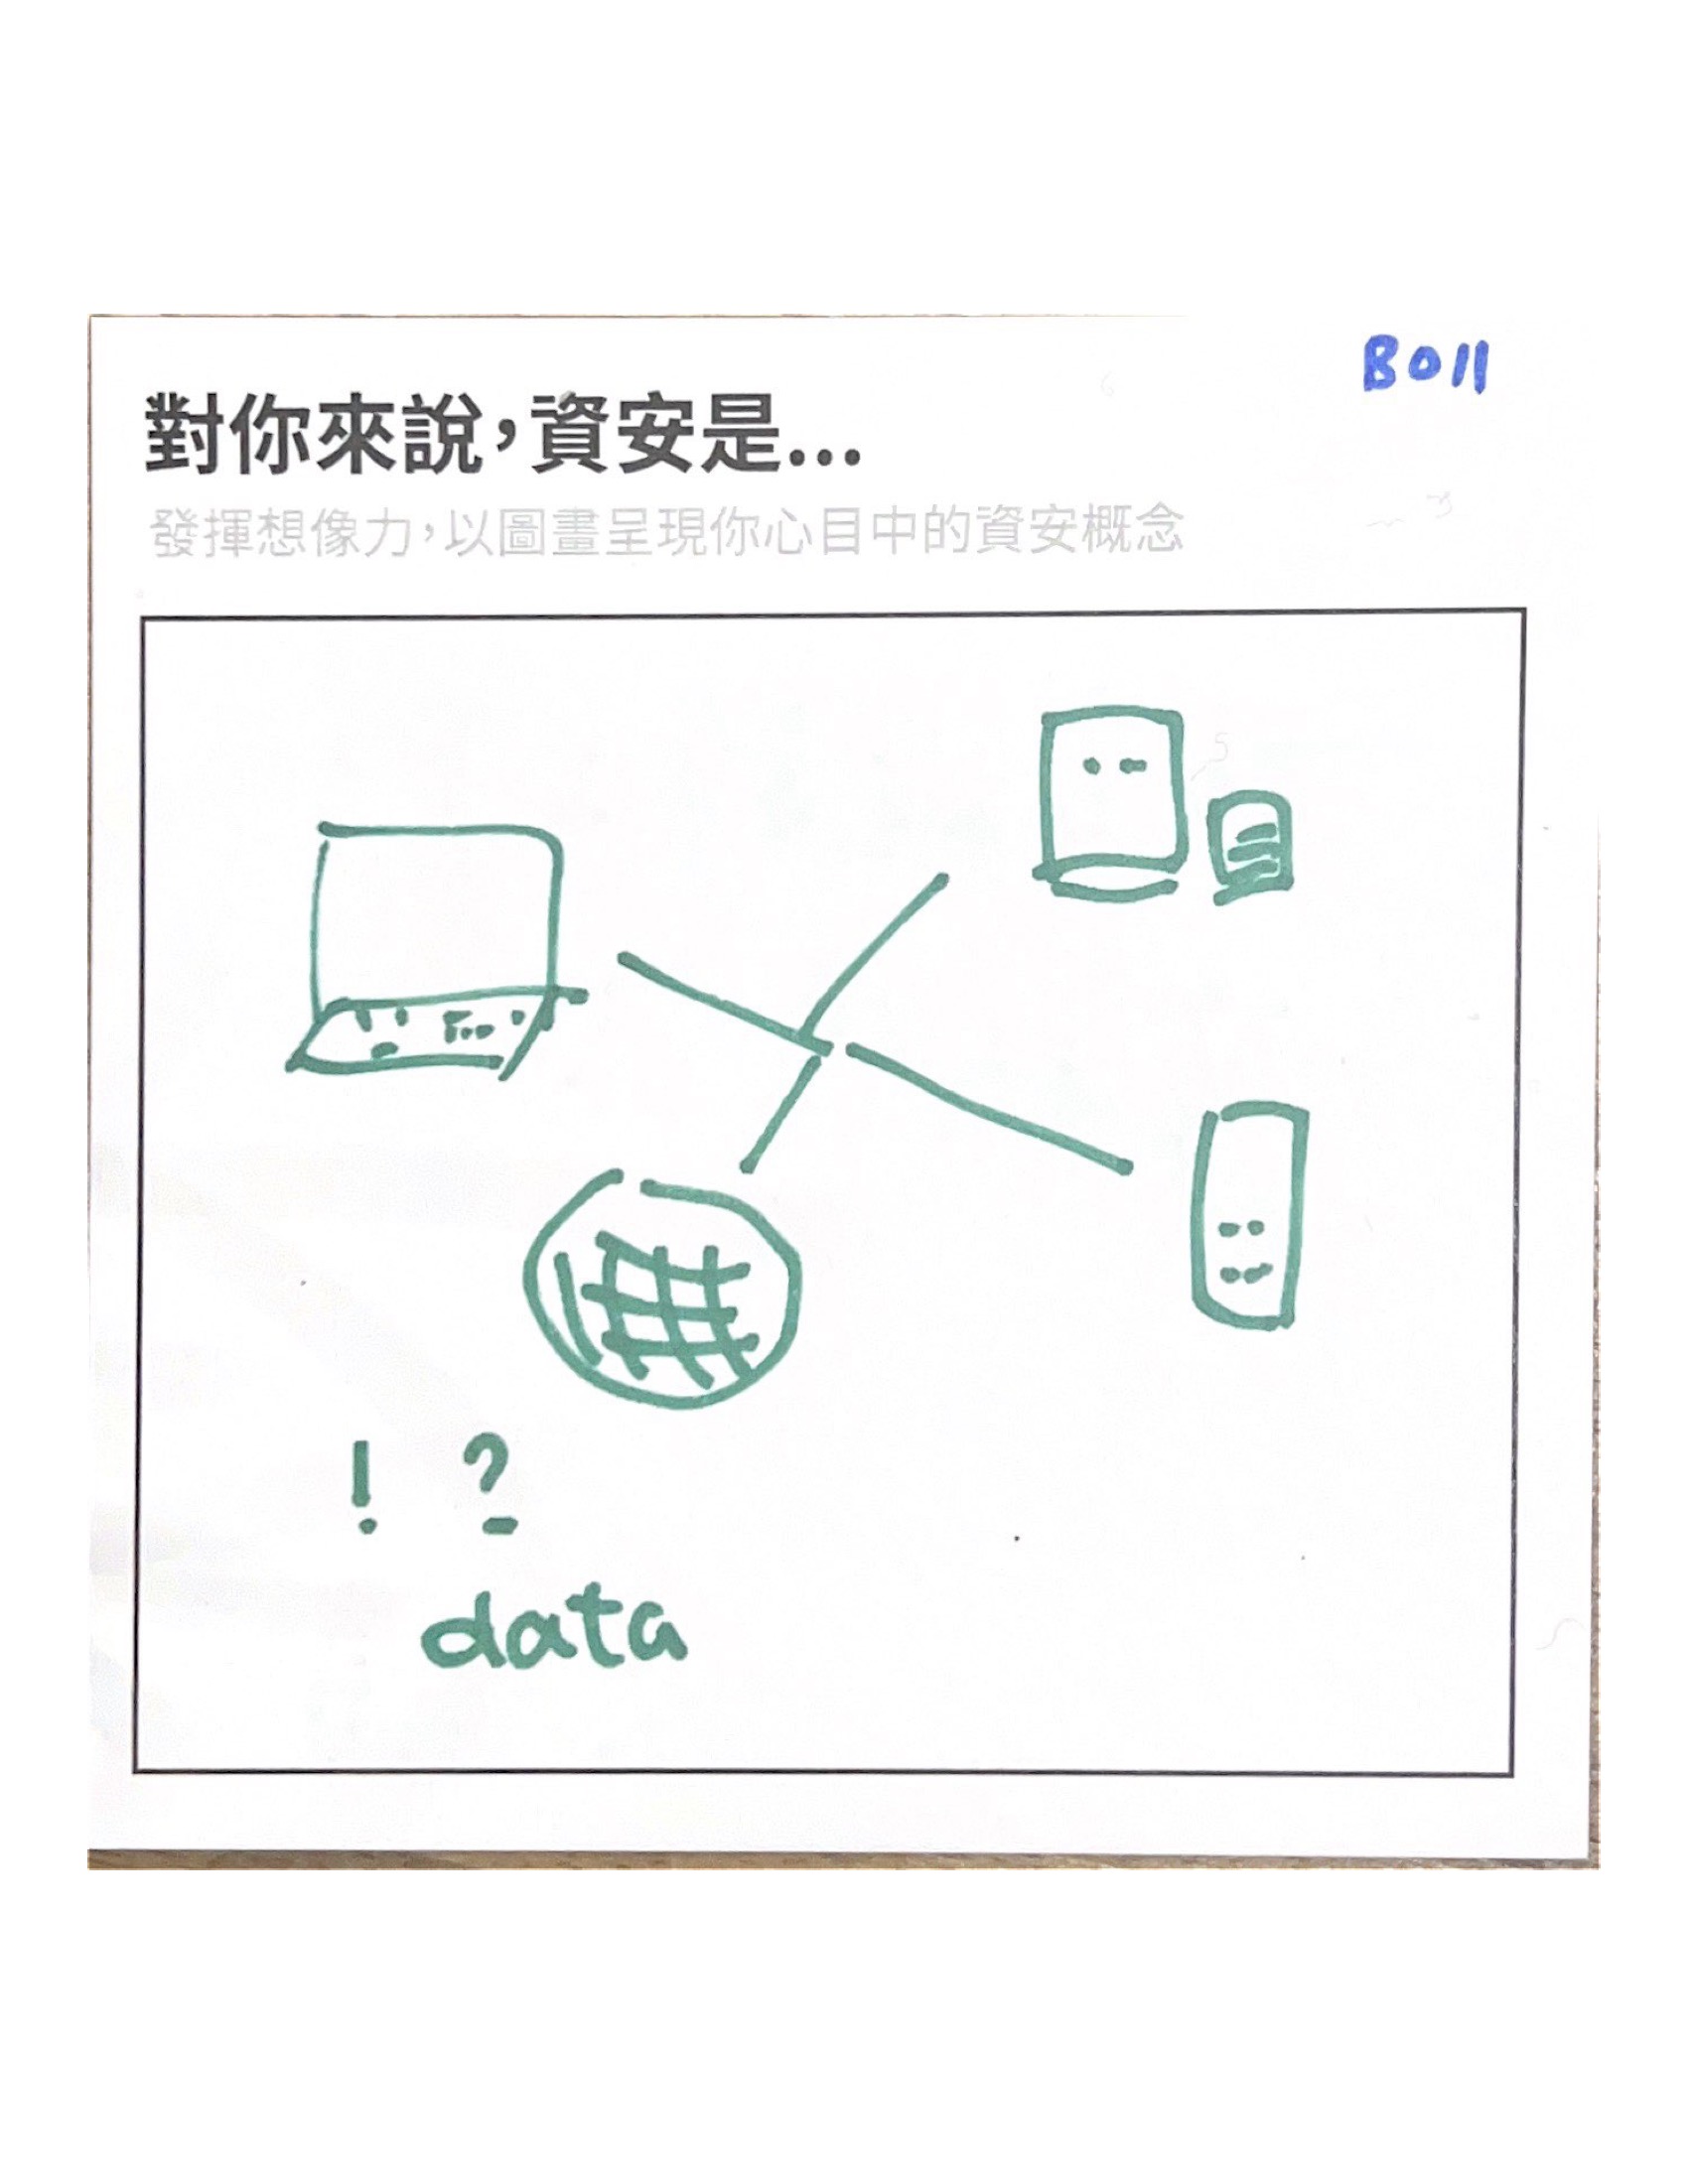 B011
對你來說，資安是...
發揮想像力，以圖畫呈現你心目中的資安概念
! ?
data